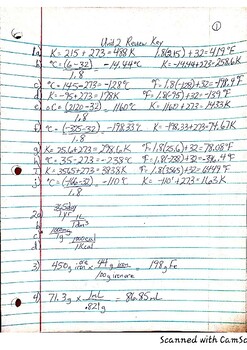 ①
Unit 2 Review Key
1a) K = 215 + 273 = 488K 1.8(215) + 32 = 419°F
b) °C = (6-32)/1.8 = -14.44°C K = -14.44+273=258.6K
c) °C = 145-273=-128°C °F= 1.8(-128)+32=-198.4°F
d) K = -95+273=178K °F= 1.8(-95)+32=-139°F
e) °C= (2120-32)/1.8 = 1160°C K= 1160+273=1433K
f) °C= (-325-32)/1.8 -198.33°C K= -198.33+273=74.67K
g) K= 25.6+273=298.6K °F= 1.8(25.6)+32=78.08°F
h) °C= 35-273=-238°C °F= 1.8(-238)+32=-396.4°F
i) K= 3565+273=3838K °F= 1.8(3565)+32=6449°F
j) °C= (-166-32)/1.8 = -110°C K= -110+273=163K
2a) 365day/1yr
b) 1L/1dm³
c) 1000mg/1g
d) 1000cal/1kcal
3) 450g iron ore × 44g iron/100g iron ore = 198g Fe
4) 71.3g × 1mL/.821g = 86.85mL
Scanned with CamSc